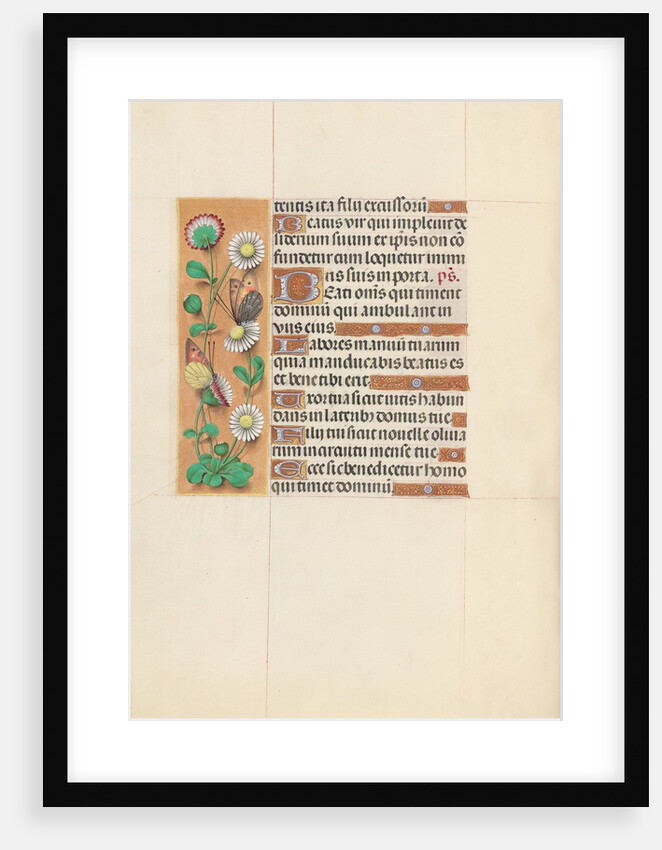 tentis ita filij excussorū
Beatus vir qui implevit de
siderium suum ex ip̄is non cō
fundetur cum loquetur inimi
cis suis in porta. ps̄.
Beati om̄s qui timent
dominū qui ambulant in
viis eius.
Labores manuū tuarum
quia manducabis beatus es
et bene tibi erit.
Uxor tua sicut vitis habun
dans in laterib⁊ domus tue.
Filij tui sicut novelle oliva
rum in circuitu mense tue.
Ecce sic benedicetur homo
qui timet dominū.